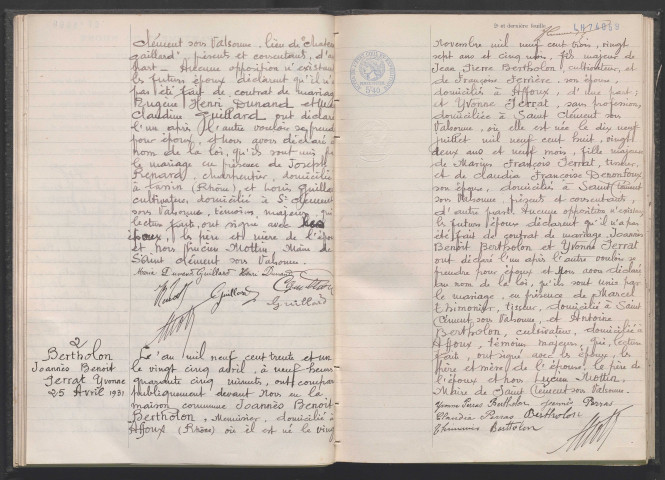 Clément sous Valsonne, lieu de Chateau
gaillard présents et consentants, d'autre
part. Aucune opposition n'existant
les futurs époux déclarent qu'il n'a
pas été fait de contrat de mariage
Eugène Henri Dunand et
Claudine Guillard ont déclaré
l'un après l'autre vouloir se prendre
pour époux, et nous avons déclaré au
nom de la loi, qu'ils sont unis par
le mariage en présence de Joseph
Renard, charpentier, domicilié
à (Rhône) et Louis Guillard
cultivateur, domicilié à St Clément
sous Valsonne, témoins majeurs, qui
lecture faite, ont signé avec les
époux, le père et mère de l'époux
et nous Lucien Mottin Maire de
Saint Clément sous Valsonne.
Marie Dunand Guillard Henri Dunand
Guillard
Guillard
2
Bertholon
Joannès Benoit
Ferrat Yvonne
25 Avril 1931
L'an mil neuf cent trente et un
le vingt cinq avril, à neuf heures
quarante cinq minutes, ont comparu
publiquement devant Nous en la
maison commune Joannès Benoit
Bertholon, Menuisier, domicilié à
Affoux (Rhône) où il est né le vingt
2e et dernière feuille
novembre mil neuf cent trois, vingt
sept ans et cinq mois, fils majeur de
Jean Pierre Bertholon, cultivateur, et
de Françoise Ferrière, son épouse,
domiciliés à Affoux, d'une part;
et Yvonne Ferrat, sans profession,
domiciliée à Saint Clément sous
Valsonne, où elle est née le dix neuf
juillet mil neuf cent huit, vingt
deux ans et neuf mois, fille majeure
de Marius François Ferrat, tisseur,
et de Claudia Françoise
son épouse, domiciliés à Saint Clément
sous Valsonne, présents et consentants,
d'autre part. Aucune opposition n'existant
les futurs époux déclarent qu'il n'a pas
été fait de contrat de mariage, Joannès
Benoit Bertholon et Yvonne Ferrat
ont déclaré l'un après l'autre vouloir se
prendre pour époux et Nous avons déclaré
au nom de la loi, qu'ils sont unis par
le mariage, en présence de Marcel
Thimonier, tisseur, domicilié à Saint
Clément sous Valsonne, et Antoine
Bertholon, cultivateur, domicilié à
Affoux, témoins majeurs, qui, lecture
faite, ont signé avec les époux, les
père et mère de l'épouse, le père de
l'époux et nous Lucien Mottin,
Maire de Saint Clément sous Valsonne.
Bertholon Joannès
Bertholon
Thimonier Bertholon